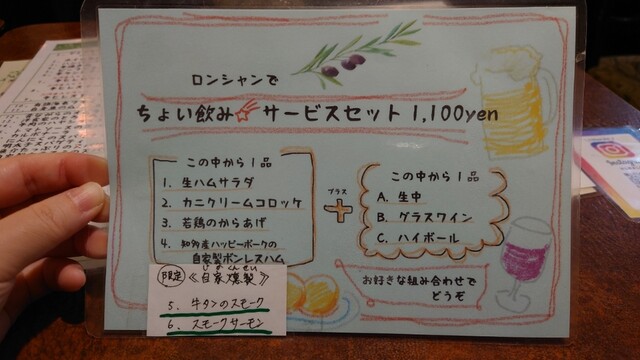 ロンシャンで
ちょい飲み☆サービスセット 1,100yen
この中から1品
1. 生ハムサラダ
2. カニクリームコロッケ
3. 若鶏のからあげ
4. 知多産ハッピーポークの
自家製ボンレスハム
限定 《自家燻製》
5. 牛タンのスモーク
6. スモークサーモン
プラス
+
この中から1品
A. 生中
B. グラスワイン
C. ハイボール
お好きな組み合わせで
どうぞ